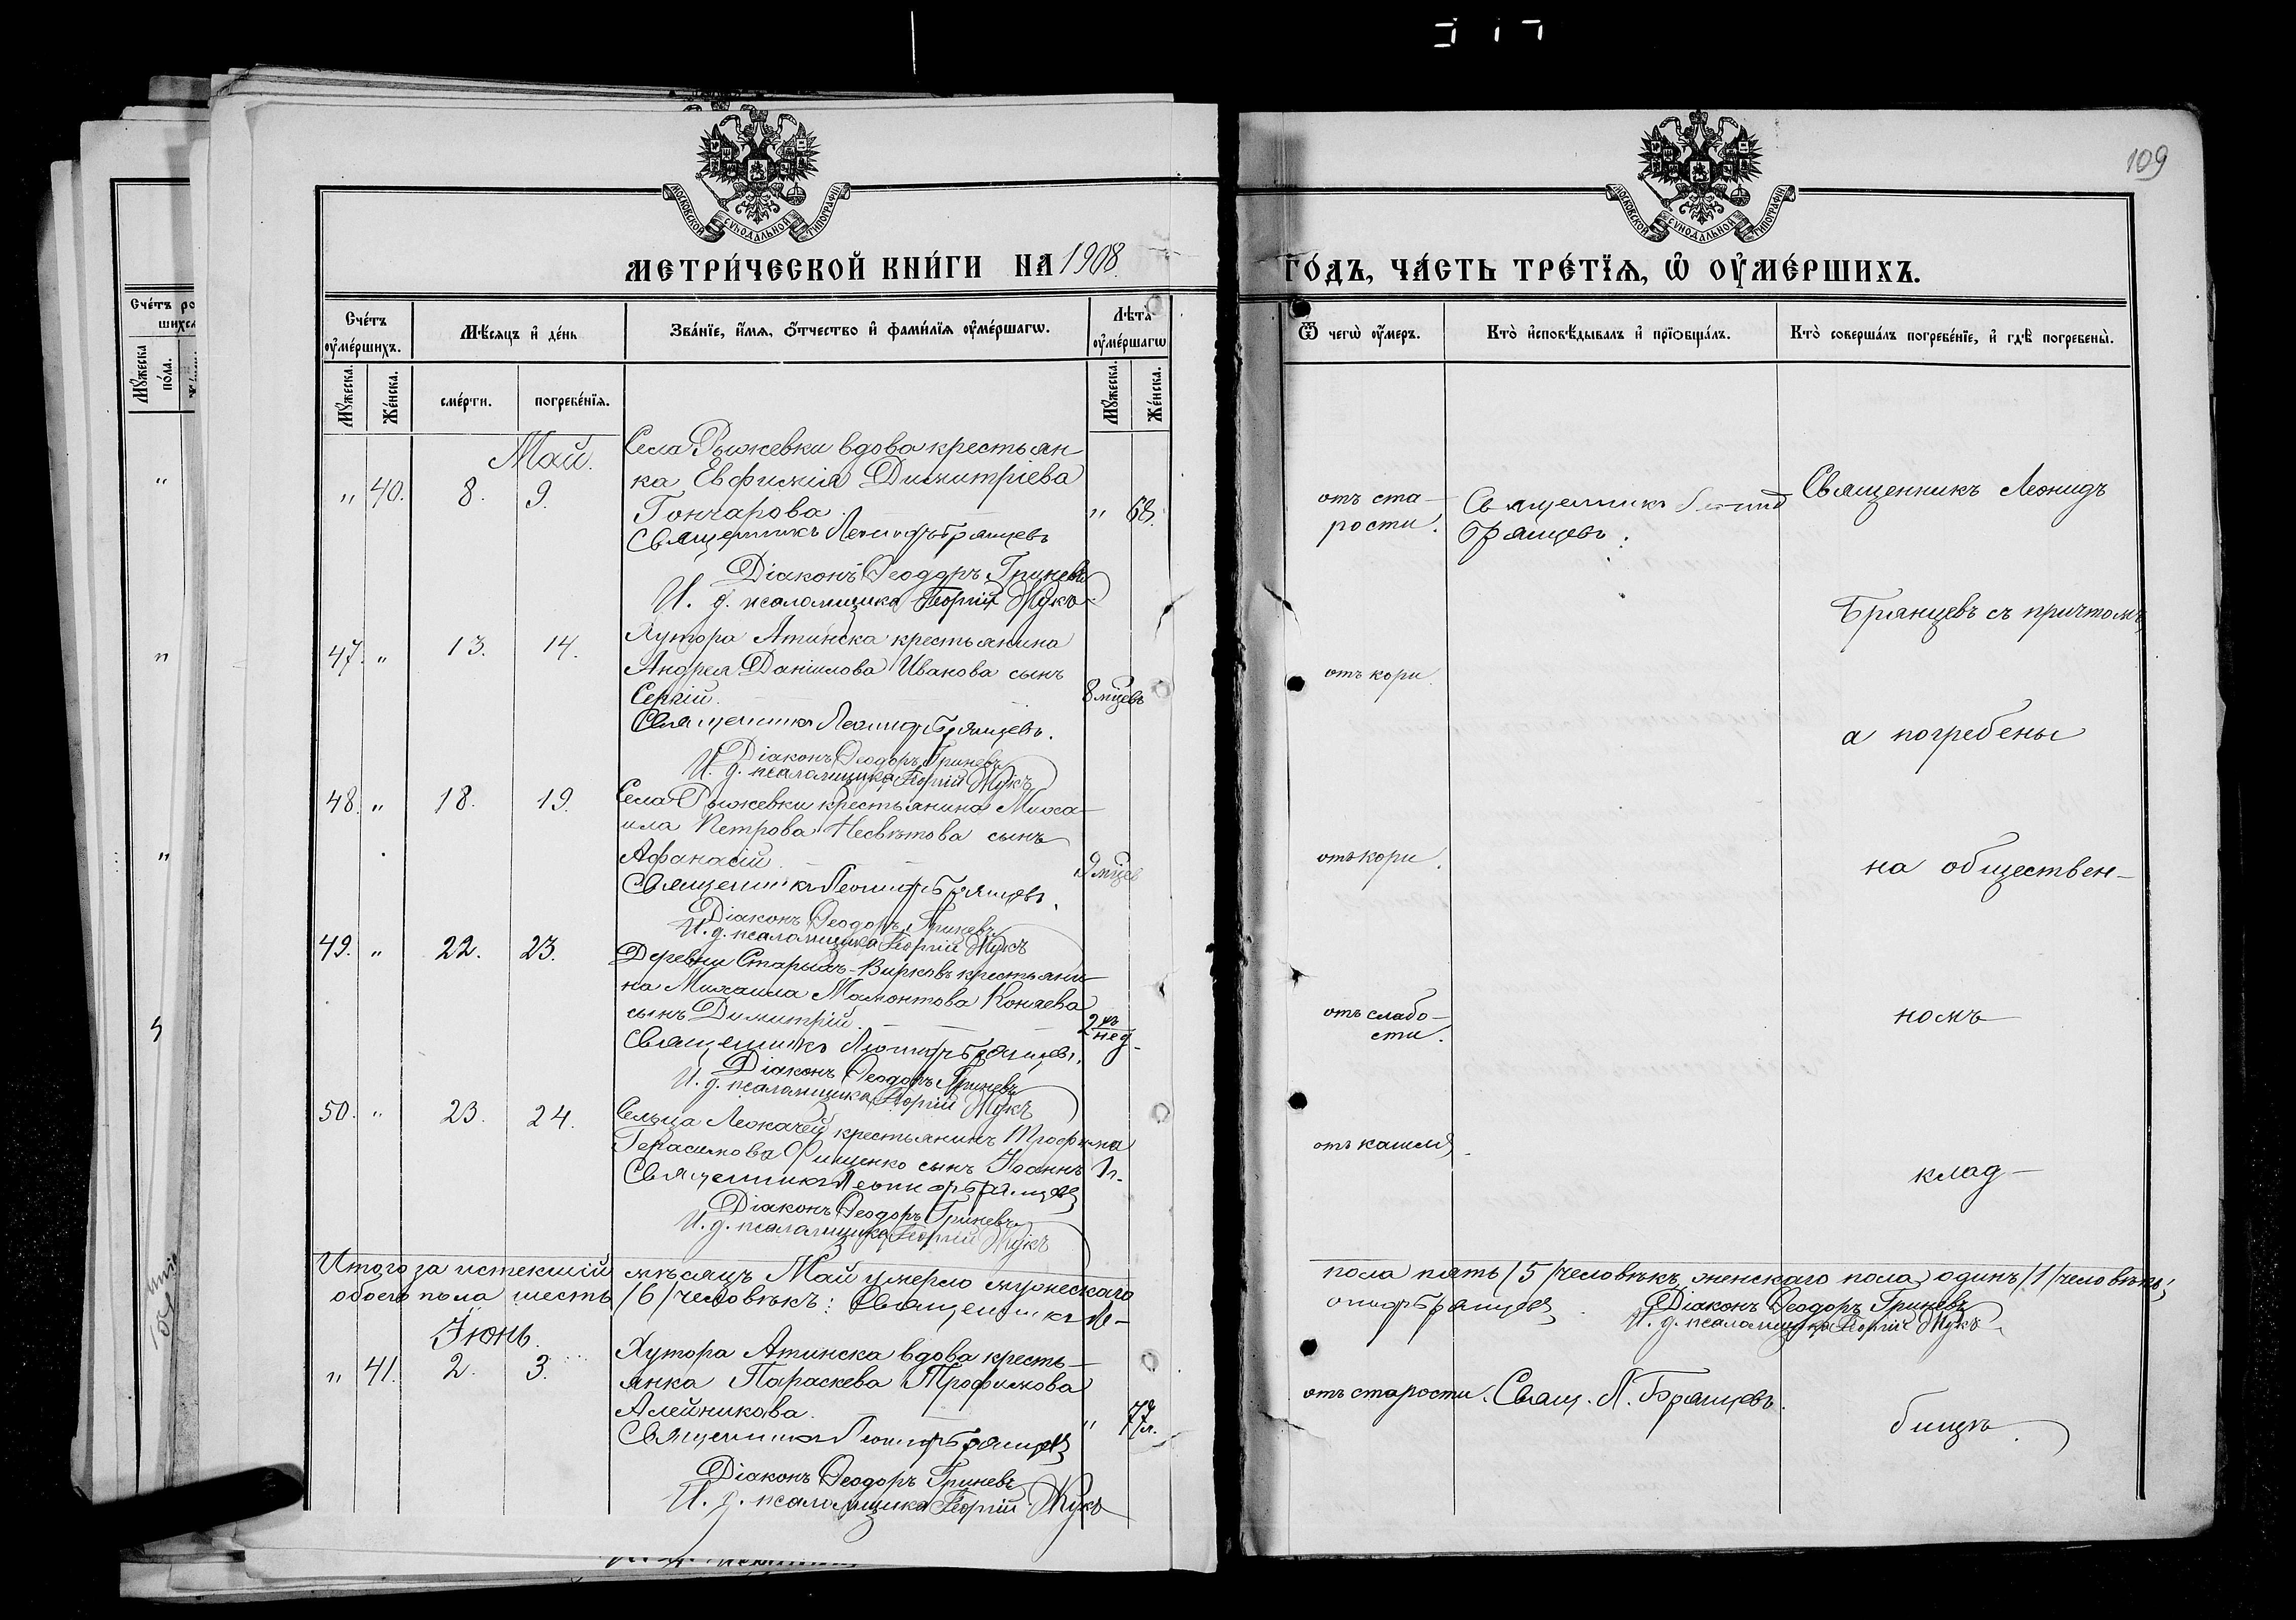 109
МОСКОВСКОЙ СѴНОДАЛЬНОЙ ТИПОГРАФІИ
МОСКОВСКОЙ СѴНОДАЛЬНОЙ ТИПОГРАФІИ
МЕТРИ́ЧЕСКОЙ КНИ́ГИ НА 1908.
ГО́ДЪ, ЧА́СТЬ ТРЕ́ТЇѦ, Ѡ҆ ОУ҆МЕ́РШИХЪ.
Сче́тъ оу҆ме́ршихъ.
Мѣ́сяцъ и҆ де́нь
Зва́нїе, и҆́мѧ, ѻ҆́тчество и҆ фами́лїѧ оу҆ме́ршагѡ.
Лѣ́та оу҆ме́ршагѡ
Мꙋ́жеска.
Же́нска.
сме́рти.
погребе́нїѧ.
Мꙋ́жеска.
Же́нска.
Ѿ чегѡ̀ оу҆́меръ.
Кто̀ и҆сповѣ́дывалъ и҆ прїѡбща́лъ.
Кто̀ соверша́лъ погребе́нїе, и҆ гдѣ̀ погребены̀.
Май.
Села Рыжевки вдова крестьян-
" 40. 8. 9. ка Евфимія Димитріева
Гончарова. " 68.
Священникъ Леонидъ Брянцевъ
Діаконъ Ѳеодоръ Гриневъ
И. д. псаломщика Георгій Жукъ
отъ ста-
рости.
Священникъ Леонид
Брянцевъ.
Священникъ Леонидъ
Брянцевъ съ причтомъ,
47. " 13. 14. Хутора Атинска крестьянина
Андрея Даніилова Иванова сынъ
Сергій. 8 мцевъ
Священникъ Леонидъ Брянцевъ.
Діаконъ Ѳеодоръ Гриневъ
И. д. псаломщика Георгій Жукъ
отъ кори.
а погребены
48. " 18. 19. Села Рыжевки крестьянина Миха-
ила Петрова Несвѣтова сынъ
Афанасій. 9 мцев
Священникъ Леонидъ Брянцевъ.
Діаконъ Ѳеодоръ Гриневъ
И. д. псаломщика Георгій Жукъ
отъ кори.
на обществен-
49. " 22. 23. Деревни Старыхъ-Вирковъ крестьяни-
на Михаила Мамонтова Коняева
сынъ Димитрій. 2 нед
Священникъ Леонидъ Брянцевъ.
Діаконъ Ѳеодоръ Гриневъ
И. д. псаломщика Георгій Жукъ
отъ слабо-
сти.
номъ
50. " 23. 24. Сельца Лежачей крестьянинъ Трофима
Герасимова Фищенко сынъ Іоаннъ 1 г.
Священникъ Леонидъ Брянцевъ
Діаконъ Ѳеодоръ Гриневъ
И. д. псаломщика Георгій Жукъ
отъ кашля.
клад-
Итого за истекшій мѣсяцъ Май умерло мужескаго
пола пять /5/ человѣкъ, женскаго пола один /1/ человѣкъ;
обоего пола шесть /6/ человѣкъ: Священникъ Ле-
онидъ Брянцевъ. Діаконъ Ѳеодоръ Гриневъ
И. д. псаломщика Георгій Жукъ
Іюнь.
" 41. 2. 3. Хутора Атинска вдова кресть-
янка Параскева Трофимова
Алейникова. " 77 л.
Священникъ Леонидъ Брянцевъ
Діаконъ Ѳеодоръ Гриневъ
И. д. псаломщика Георгій Жукъ
отъ старости. Свящ. Л. Брянцевъ.
бищѣ.